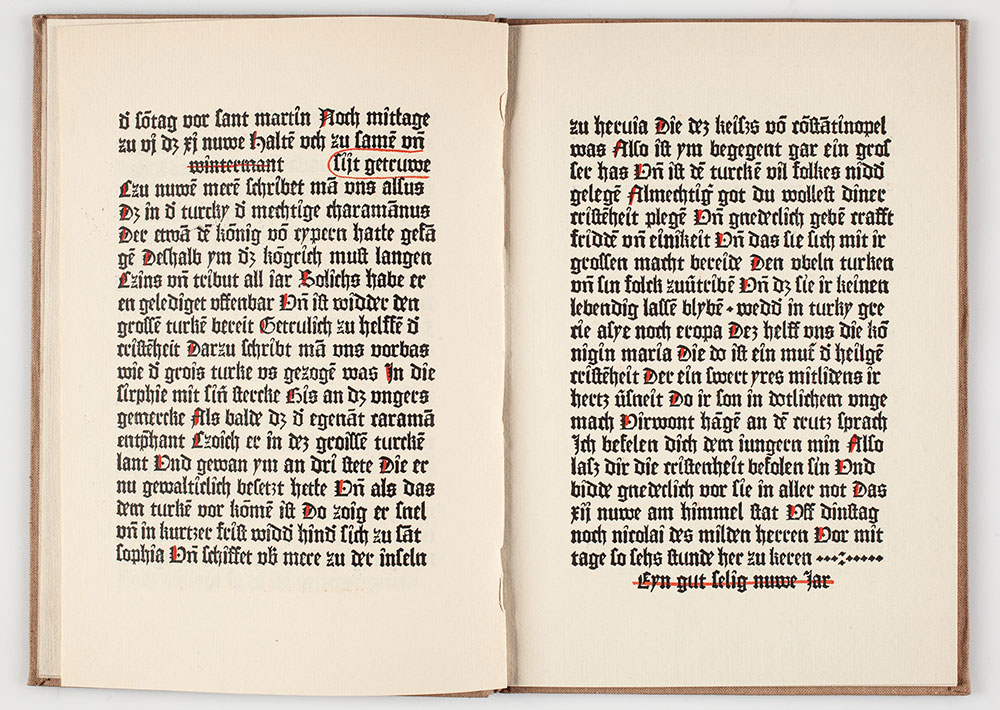 d̄ sōtag vor sant martin Noch mittage
zu vj dꝫ xj nuwe Haltē vch zu samē vn̄
sijt getruwe
wintermant
Czu nuwē merē schribet mā vns alsus
Dꝫ in d̄ turcky d̄ mechtige charamānus
Der etwā dē kōnig vō cypern hatte gefā
gē Deshalb ym dꝫ kōgrich must langen
Czins vn̄ tribut all iar Solichs habe er
en gelediget vffenbar Vn̄ ist widder den
grossē turkē bereit Getrulich zu helffē d̄
cristēheit Darzu schribt mā vns vorbas
wie d̄ grois turke vs gezogē was In die
sirphie mit sin̄ stercke Bis an dꝫ vngers
gemercke Als balde dꝫ d̄ egenāt caramā
entp̄hant Czoich er in deꝫ groissē turckē
lant Vnd gewan ym an dri stete Die er
nu gewalticlich besetzt hette Vn̄ als das
dem turkē vor kōmē ist Do zoig er snel
vn̄ in kurtzer frist widd̄ hind̄ sich zu sāt
sophia Vn̄ schiffet vb̄ mere zu der inseln
zu heruia Die deꝫ keisꝫs vō cōstātinopel
was Also ist ym begegent gar ein gros
sec has Vn̄ ist dē turckē vil folkes nidd̄
gelegē Almechtiḡ got du wollest diner
cristēheit plegē Vn̄ gnedeclich gebē crafft
friddē vn̄ einikeit Vn̄ das sie sich mit ir
grossen macht bereide Den vbeln turken
vn̄ sin folck zuūtribē Vn̄ dꝫ sie ir keinen
lebendig lassē blybē · wedd̄ in turky gre
cie asye noch eropa Deꝫ helff vns die kō
nigin maria Die do ist ein mut̄ d̄ heilgē
cristēheit Der ein swert yres mitlidens ir
hertz ūsneit Do ir son in dotlichem vnge
mach Virwont hāgē an dē crutz sprach
Ich befelen dich dem iungern min Also
lasꝫ dir die cristenheit befolen sin Vnd
bidde gnedeclich vor sie in aller not Das
xij nuwe am himmel stat Vff dinstag
noch nicolai des milden herren Vor mit
tage so sehs stunde her zu keren
Eyn gut selig nuwe Jar